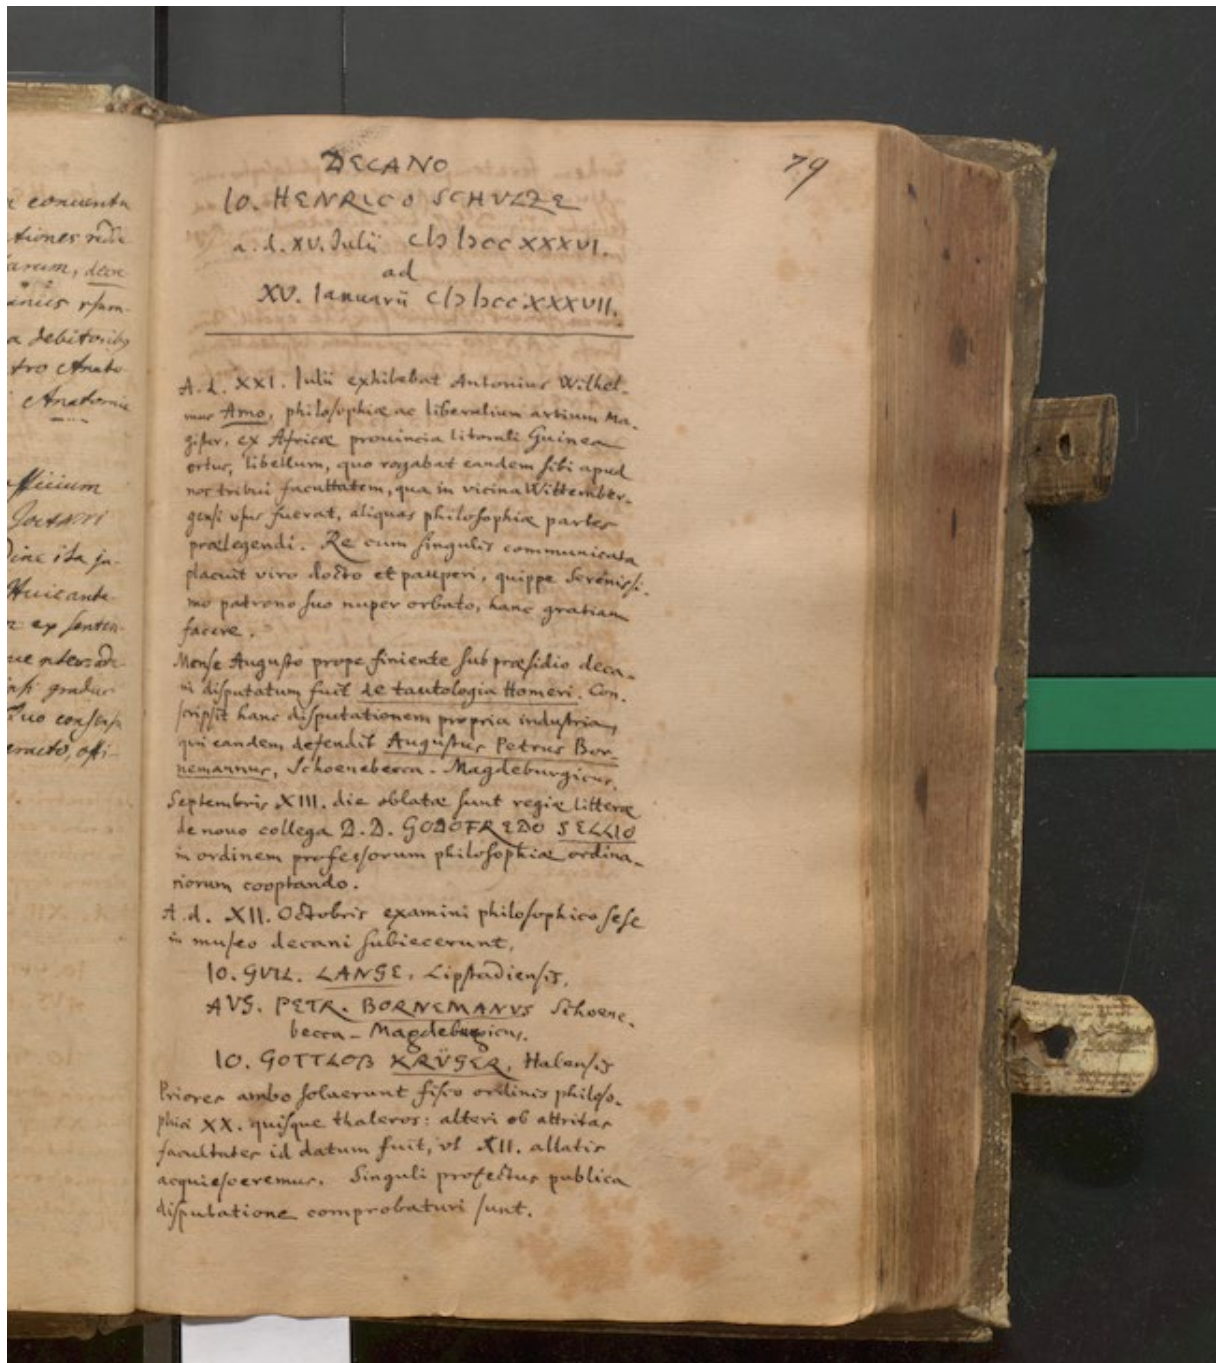 n conventu
tiones
arum, decre
a debitoribus
tro Anato-
Anatomie
fficium
Huic ante-
r ex senten-
psi gradus
eracto, offi-
79
DECANO
IO. HENRICO SCHVLZE
a. d. XV. Julii CIƆ IƆCC XXXVI.
ad
XV. Ianuarii CIƆ IƆCC XXXVII.
A. d. XXI. Iulii exhibebat Antonius Wilhel-
mus Amo, philosophiæ ac liberalium artium Ma-
gister, ex Africæ prouincia litorali Guinea
ortus, libellum, quo rogabat eandem sibi apud
nos tribui facultatem, qua in vicina Wittember-
gensi usus fuerat, aliquas philosophiæ partes
prælegendi. Re cum singulis communicata
placuit viro docto et pauperi, quippe Serenissi-
mo patrono suo nuper orbato, hanc gratiam
facere.
Mense Augusto prope finiente sub præsidio deca-
ni disputatum fuit de tautologia Homeri. Con-
scripsit hanc disputationem propria industria,
qui eandem defendit Augustus Petrus Bor-
nemannus, Schoenebecca-Magdeburgicus.
Septembris XIII. die oblatæ sunt regiæ litteræ
de nouo collega D. D. GODOFREDO SELLIO
in ordinem professorum philosophiæ ordina-
riorum cooptando.
A. d. XII. Octobris examini philosophico sese
in museo decani subiecerunt,
IO. GUIL. LANGE, Lipstadiensis,
AVG. PETR. BORNEMANVS Schoene-
becca-Magdeburgicus,
IO. GOTTLOB KRÜGER, Halensis
Priores ambo soluerunt fisco ordinis philoso-
phici XX. quisque thaleros: alteri ob attritas
facultates id datum fuit, vt XII. allatis
acquiesceremus. Singuli profectus publica
disputatione comprobaturi sunt.